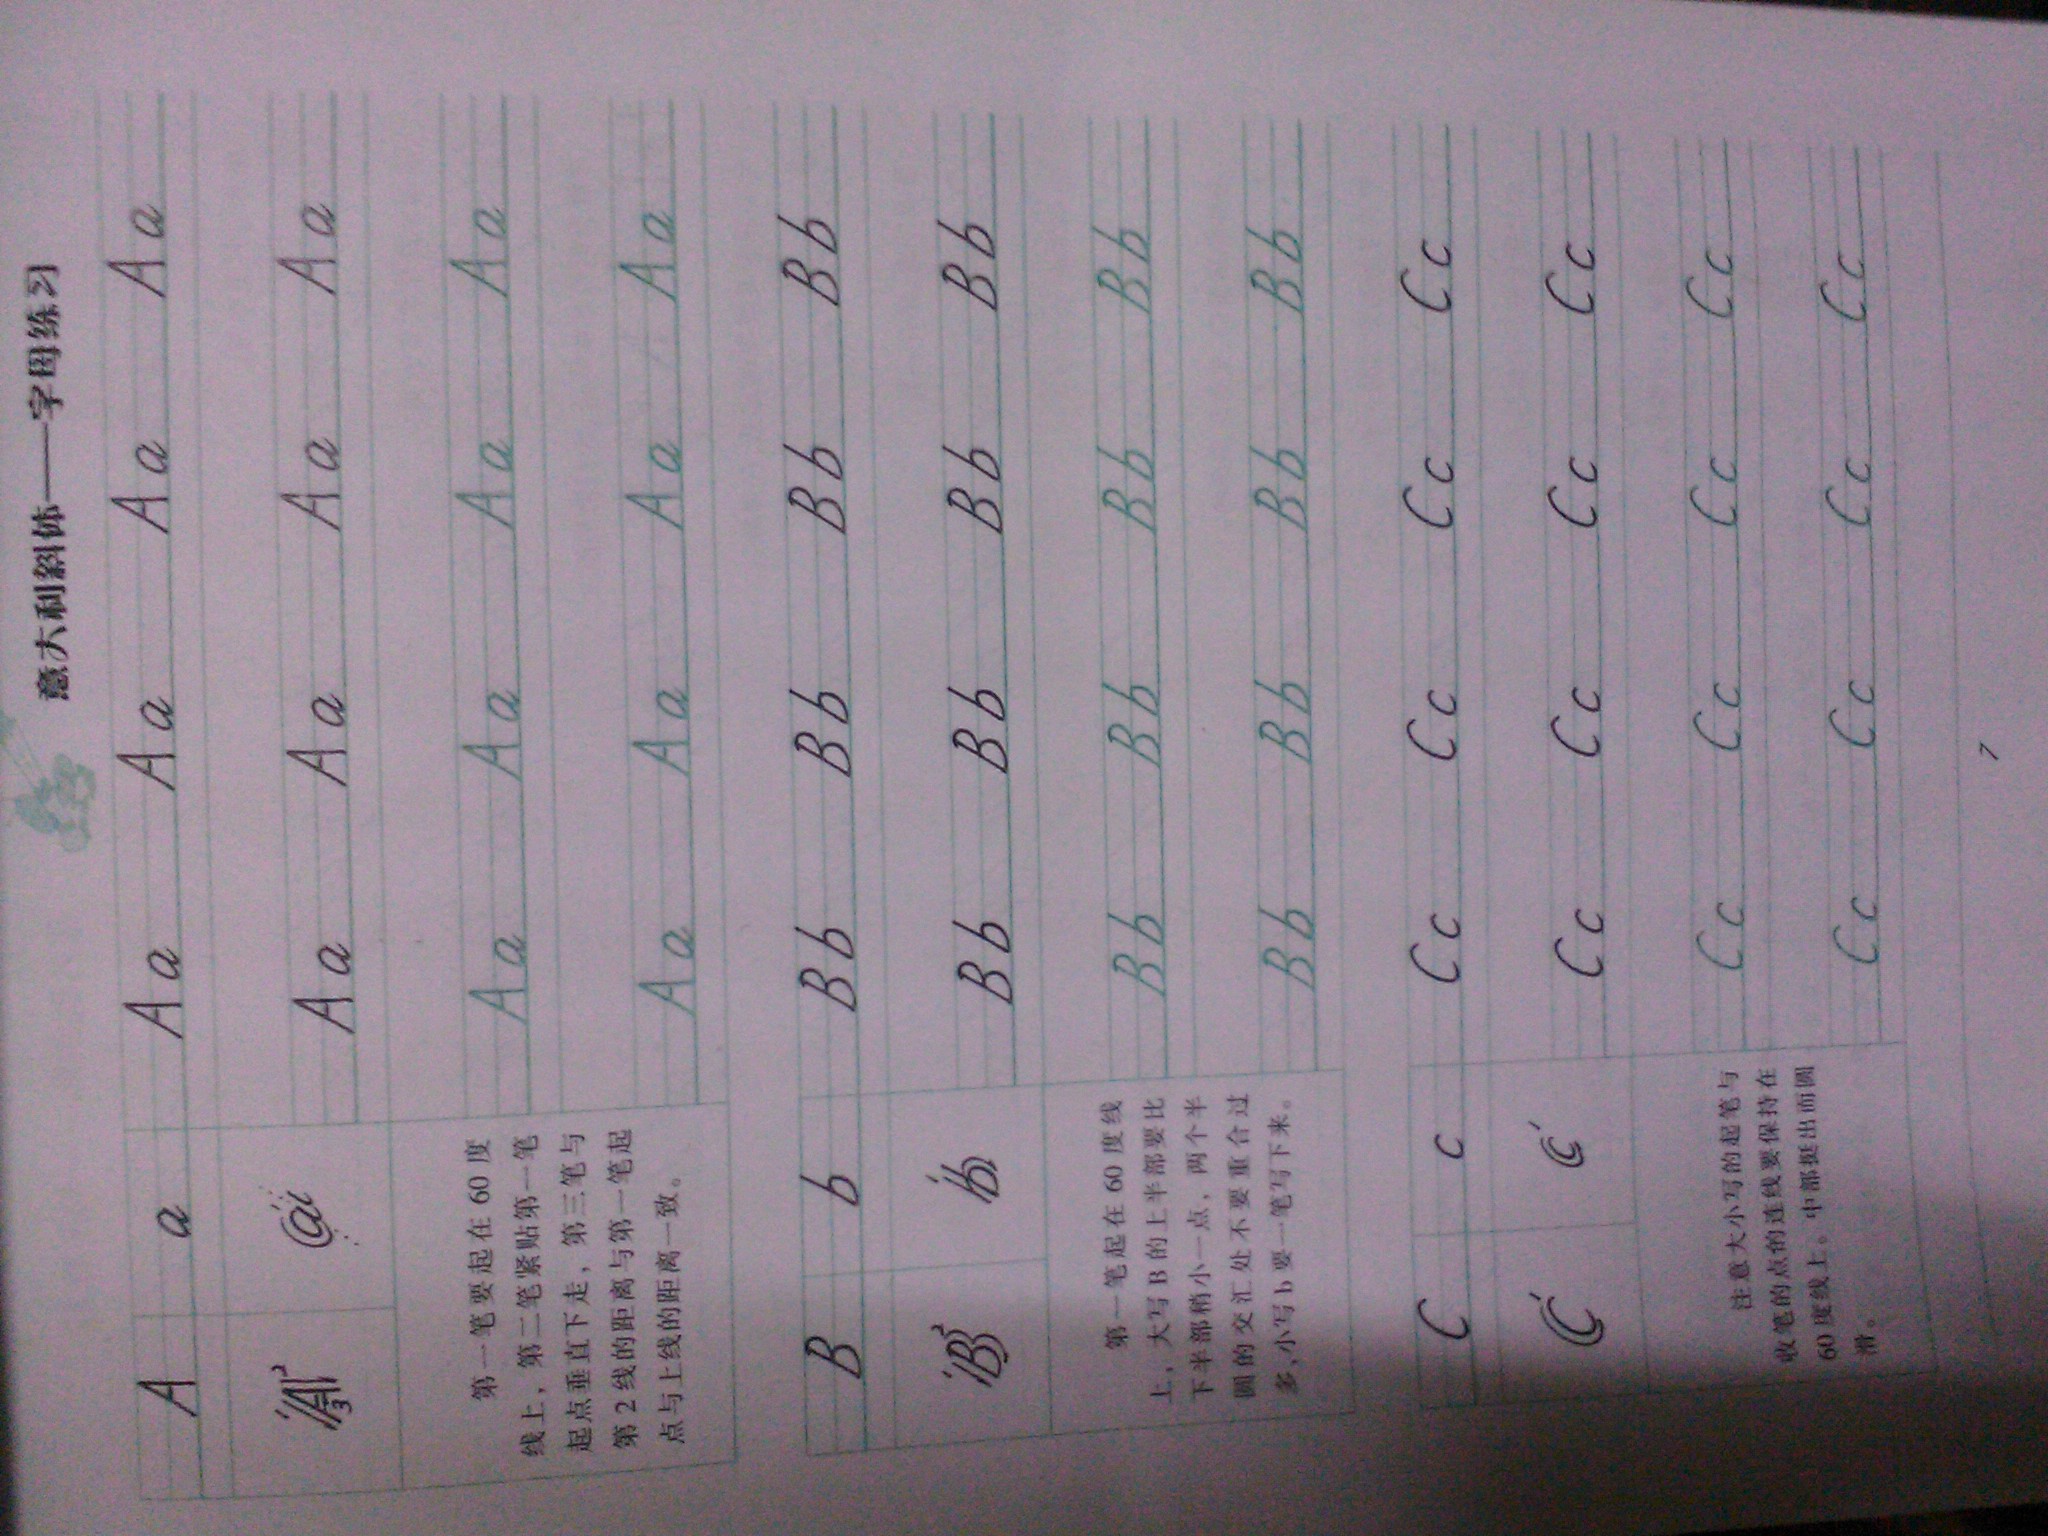 意大利斜体——字母练习
A a
Aa Aa Aa Aa
A a
1 2 3 1
Aa Aa Aa Aa
第一笔要起在60度
线上，第二笔紧贴第一笔
起点垂直下走，第三笔与
第2线的距离与第一笔起
点与上线的距离一致。
Aa Aa Aa Aa
Aa Aa Aa Aa
B b
Bb Bb Bb Bb
B b
1 2 1
Bb Bb Bb Bb
第一笔起在60度线
上，大写B的上半部要比
下半部稍小一点，两个半
圆的交汇处不要重合过
多，小写b要一笔写下来。
Bb Bb Bb Bb
Bb Bb Bb Bb
C c
Cc Cc Cc Cc
C c
1 1
Cc Cc Cc Cc
注意大小写的起笔与
收笔的点的连线要保持在
60度线上。中部挺出而圆
滑。
Cc Cc Cc Cc
Cc Cc Cc Cc
7